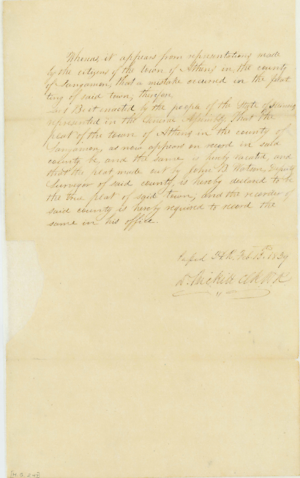 Whereas it appears from representations made
by the citizens of the town of Athens in the county
of Sangamon, that a mistake occured in the plat
ting of said town, therefore
Sec 1 Be it enacted by the people of the state of Illinois
represented in the General Assembly, That the
plat of the town of Athens in the county of
Sangamon, as now appears on record in said
county be and the same is hereby vacated, and
that the plat made out by John B Watson, Deputy
Surveyor of said county, is hereby declared to be
the true plat of said town, and the recorder of
said county is hereby required to record the
same in his office
Feb 13th 1839